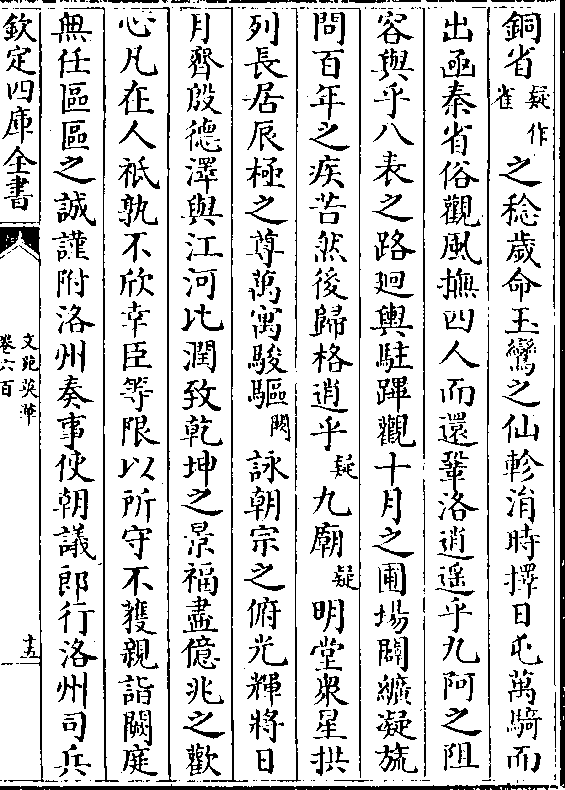 銅省疑作雀之稔歲命玉鸞之仙軫消時擇日屯萬騎而
出函秦省俗觀風撫四人而還鞏洛逍遥乎九阿之阻
容與乎八表之路廻輿駐蹕觀十月之圃場闢纊凝旒
問百年之疾苦然後歸格逍乎疑九廟疑明堂衆星拱
列長居辰極之尊萬寓駿驅闕詠朝宗之俯光輝將日
月齊殷德澤與江河比潤致乾坤之景福盡億兆之歡
心凡在人祇孰不欣幸臣等限以所守不獲親詣闕庭
無任區區之誠謹附洛州奏事使朝議郎行洛州司兵
欽定四庫全書
文苑英華
卷六百
十五